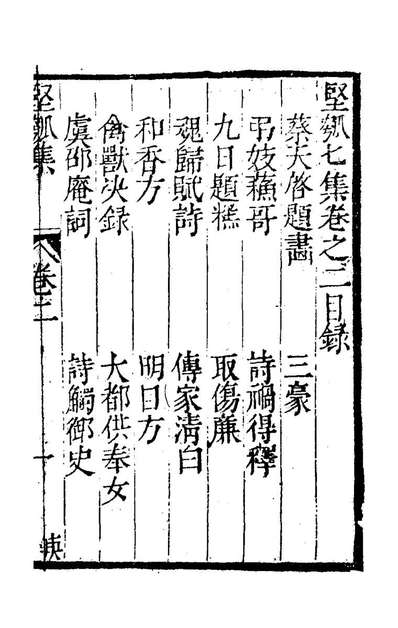 堅瓠七集卷之二目録
蔡天啓題畵 三豪
弔妓蘓哥 詩禍得釋
九日題糕 取傷廉
魂歸賦詩 傳家清白
和香方 明日方
禽獸决録 大都供奉女
虞邵庵詞 詩觸御史
堅瓠集 卷二 一